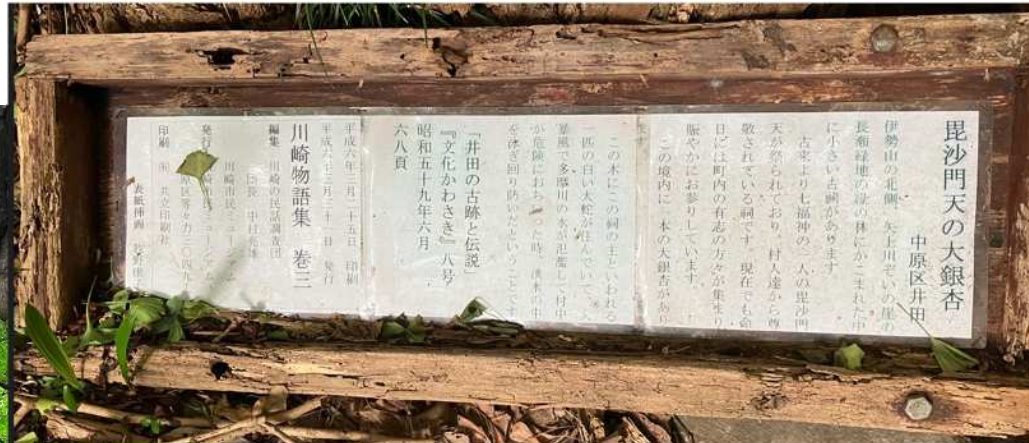 毘沙門天の大銀杏
中原区井田
伊勢山の北側、矢上川ぞいの崖の
長瀬緑地の緑の林にかこまれた中
に小さい古祠があります
古来より七福神の一人の毘沙門
天が祭られており、村人達から尊
敬されている祠です。現在でも命
日には町内の有志の方々が集まり
賑やかにお参りしています。
この境内に一本の大銀杏があり
ます。
この木にこの祠の主といわれる
一匹の白い大蛇が住んでいて、大
暴風で多摩川の水が氾濫して村中
が危険におちいった時、洪水の中
を泳ぎ回り防いだということです
「井田の古跡と伝説」
『文化かわさき』八号
昭和五十九年六月
六八頁
平成六年三月二十五日 印刷
平成六年三月三十一日 発行
川崎物語集 巻三
編集 川崎の民話調査団
団長 中村亮雄
発行 川崎市市民ミュージアム
印刷 共立印刷社
表紙挿画